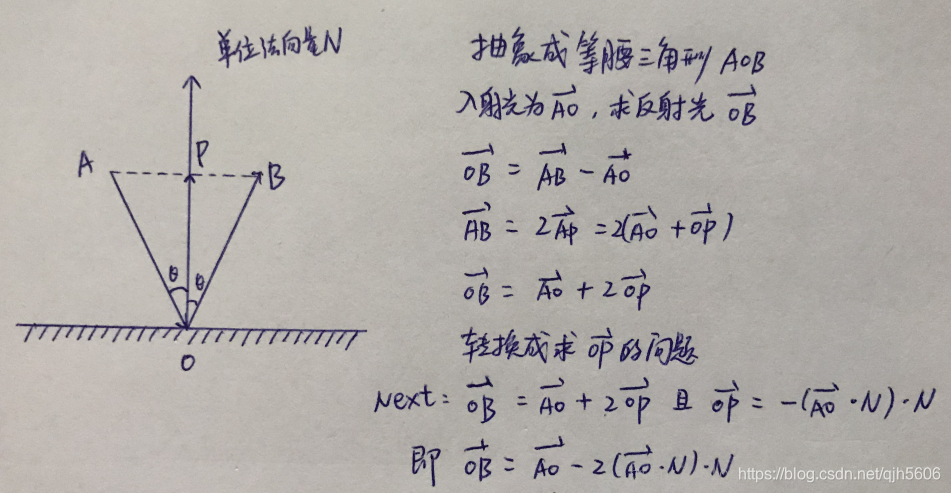 单位法向量N
A
P
B
θ
θ
O
抽象成等腰三角形 AOB
入射光为 $\overrightarrow{AO}$，求反射光 $\overrightarrow{OB}$
$\overrightarrow{OB} = \overrightarrow{AB} - \overrightarrow{AO}$
$\overrightarrow{AB} = 2\overrightarrow{AP} = 2(\overrightarrow{AO} + \overrightarrow{OP})$
$\overrightarrow{OB} = \overrightarrow{AO} + 2\overrightarrow{OP}$
转换成求 $\overrightarrow{OP}$ 的问题
Next: $\overrightarrow{OB} = \overrightarrow{AO} + 2\overrightarrow{OP}$ 且 $\overrightarrow{OP} = -(\overrightarrow{AO} \cdot N) \cdot N$
即 $\overrightarrow{OB} = \overrightarrow{AO} - 2(\overrightarrow{AO} \cdot N) \cdot N$
https://blog.csdn.net/qjh5606